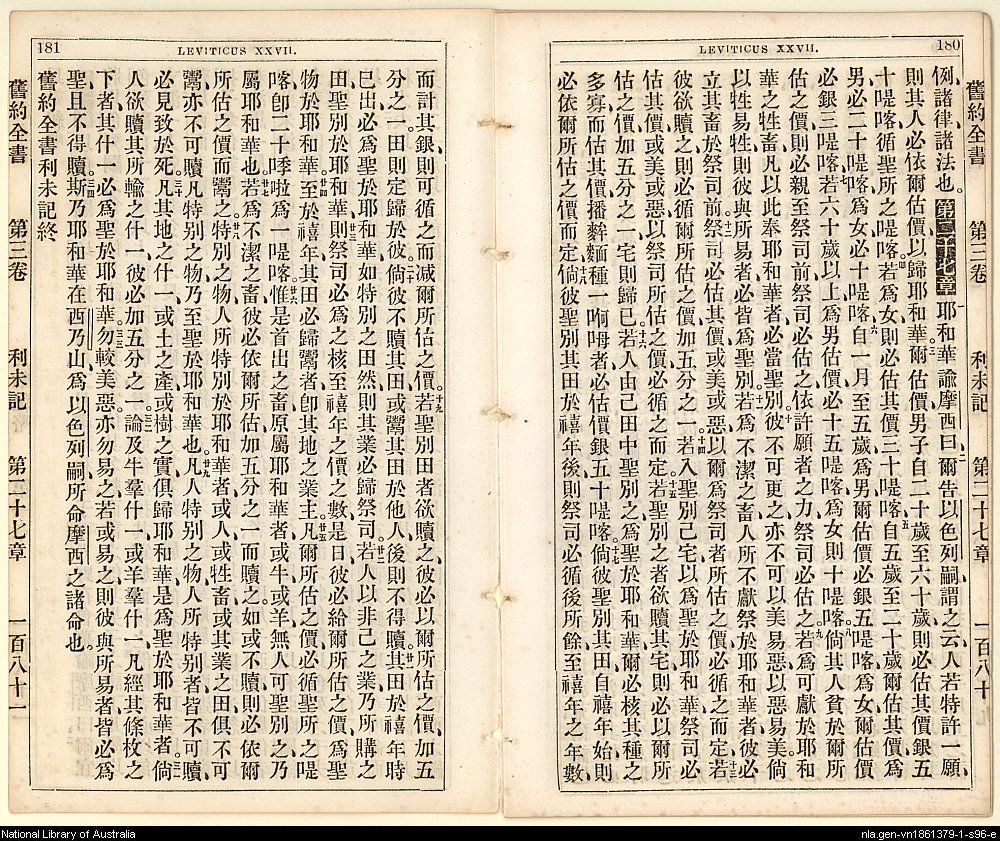 LEVITICUS XXVII. 180
舊約全書 第三卷 利未記 第二十七章 一百八十
例、諸律諸法也。第二十七章 耶和華諭摩西曰、爾告以色列嗣、謂之云、人若特許一願、
則其人必依爾估價、以歸耶和華、爾估價男子自二十歲至六十歲、則必估其價銀五
十㖷喀、循聖所之㖷喀、若爲女、則必估其價三十㖷喀、自五歲至二十歲、爾估其價、爲
男必二十㖷喀、爲女必十㖷喀、自一月至五歲、爲男爾估價必銀五㖷喀、爲女爾估價
必銀三㖷喀、若六十歲以上、爲男估價、必十五㖷喀、爲女則十㖷喀、倘其人貧於爾所
估之價、則必親至祭司前、祭司必估之、依許願者之力、祭司必估之、若爲可獻於耶和
華之牲畜、凡以此奉耶和華者、必當聖別、彼不可更之、亦不可以美易惡、以惡易美、倘
以牲易牲、則彼與所易者、必皆爲聖別、若爲不潔之畜、人所不獻祭於耶和華者、彼必
立其畜於祭司前、祭司必估其價、或美或惡、以爾爲祭司者所估之價、必循之而定、若
彼欲贖之、則必循爾所估之價、加五分之一、若人聖別己宅、以爲聖於耶和華、祭司必
估其價、或美或惡、以祭司所估之價、必循之而定、若聖別之者欲贖其宅、則必以爾所
估之價、加五分之一、宅則歸己、若人由己田中聖別之爲聖於耶和華、爾必核其種之
多寡、而估其價、播麵種一呣者、必估價銀五十㖷喀、倘彼聖別其田、自禧年始、則
必依爾所估之價而定、倘彼聖別其田於禧年後、則祭司必循後所餘至禧年之年數、
181 LEVITICUS XXVII.
而計其銀、則可循之而減爾所估之價。若聖別田者欲贖之、彼必以爾所估之價、加五
分之一、田則定歸於彼、倘彼不贖其田、或鬻其田於他人後、則不得贖、其田於禧年時
已出、必爲聖於耶和華、如特別之田然、則其業必歸祭司、若人以非己之業、乃所購之
田、聖別於耶和華、則祭司必爲之核至禧年之價之數、是日彼必給爾所估之價、爲聖
物於耶和華、至於禧年、其田必歸鬻者、卽其地之業主、凡爾所估之價、必循聖所之㖷
喀、卽二十呀啦爲一㖷喀、惟是首出之畜、原屬耶和華者、或牛或羊、無人可聖別之、乃
屬耶和華也。若爲不潔之畜、彼必依爾所估、加五分之一而贖之、如或不贖、則必依爾
所估之價而鬻之、特別之物、人所特別於耶和華者、或人或牲畜、或其業之田、俱不可
鬻、亦不可贖、凡特別之物、乃至聖於耶和華也。凡人特別之物、人所特別者、皆不可贖、
必見致於死。凡其地之什一、或土之產、或樹之實、俱歸耶和華、是爲聖於耶和華者、倘
人欲贖其所輸之什一、彼必加五分之一、論及牛羣什一、或羊羣什一、凡經其條杖之
下者、其什一必爲聖於耶和華、勿較美惡、亦勿易之、若或易之、則彼與所易者、皆必爲
聖、且不得贖、斯乃耶和華在西乃山、爲以色列嗣所命摩西之諸命也。
舊約全書利未記終
舊約全書 第三卷 利未記 第二十七章 一百八十一
National Library of Australia
nla.gen-vn1861379-1-s96-e